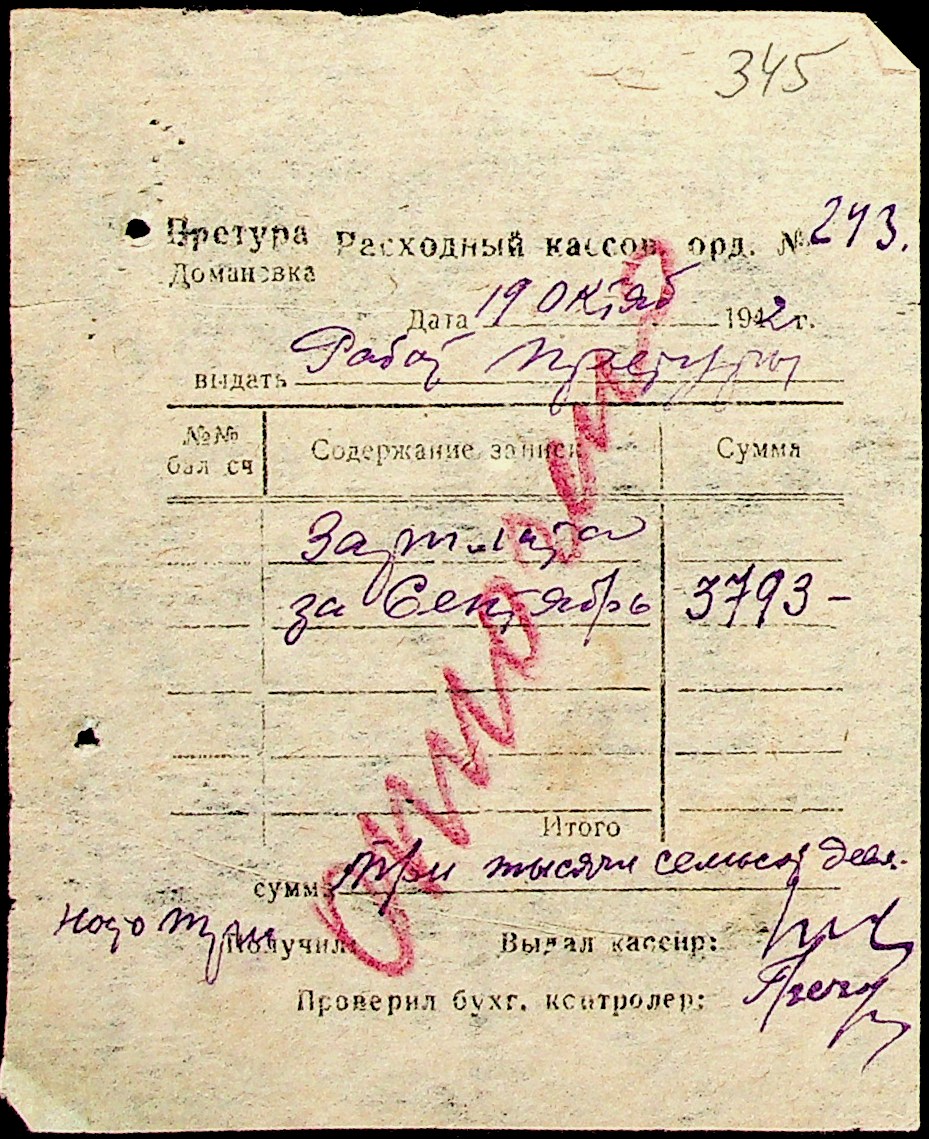 345
Претура Расходный кассов. орд. № 243.
Домановка
Дата 19 Октяб 1942 г.
выдать Работ Претуры
№№ бал сч Содержание записи Сумма
Зарплата
за Сентябрь 3793 –
Итого
сумм. Три тысячи семьсот девя-
носто три
Получил Выдал кассир:
Проверил бухг. контролер: